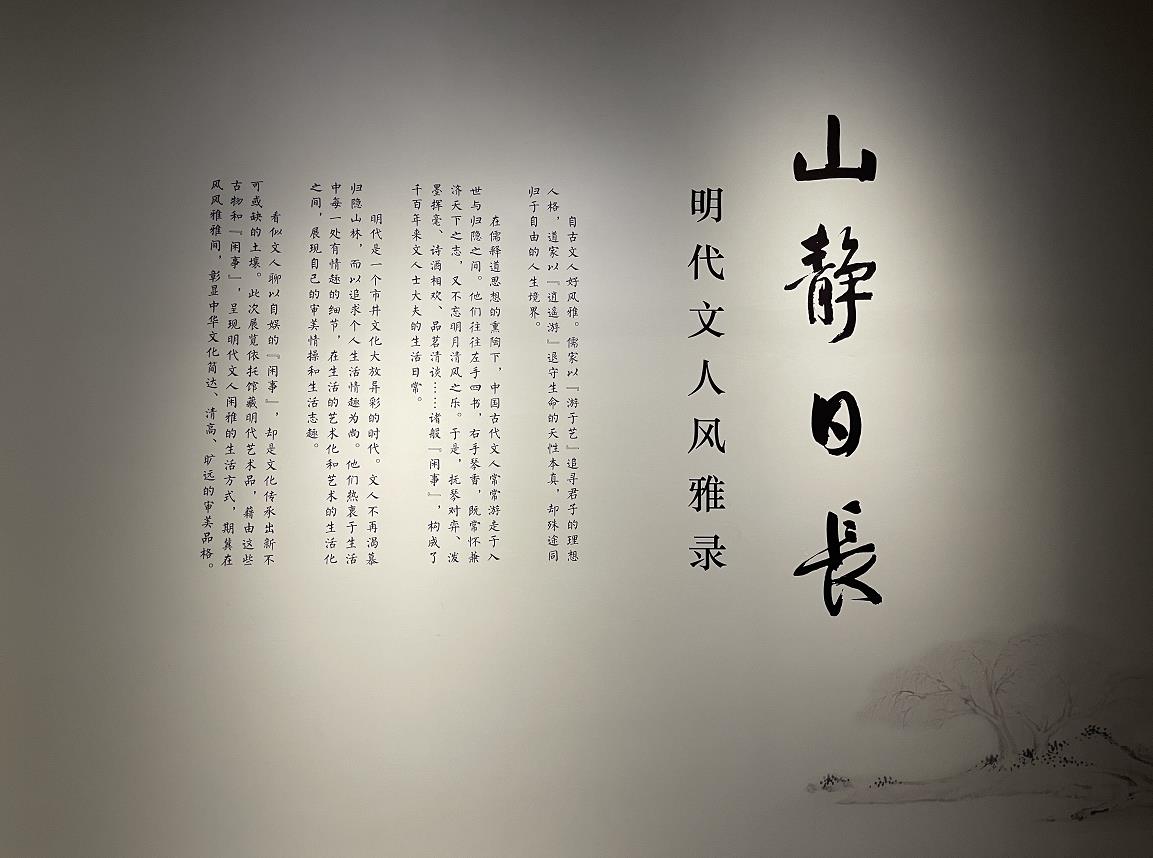 山静日長
明代文人风雅录
自古文人好风雅。儒家以『游于艺』追寻君子的理想
人格，道家以『逍遥游』退守生命的天性本真，却殊途同
归于自由的人生境界。
在儒释道思想的熏陶下，中国古代文人常常游走于入
世与归隐之间。他们往往左手四书，右手琴香，既常怀兼
济天下之志，又不忘明月清风之乐。于是，抚琴对弈、泼
墨挥毫、诗酒相欢、品茗清谈……诸般『闲事』，构成了
千百年来文人士大夫的生活日常。
明代是一个市井文化大放异彩的时代。文人不再渴慕
归隐山林，而以追求个人生活情趣为尚。他们热衷于生活
中每一处有情趣的细节，在生活的艺术化和艺术的生活化
之间，展现自己的审美情操和生活志趣。
看似文人聊以自娱的『闲事』，却是文化传承出新不
可或缺的土壤。此次展览依托馆藏明代艺术品，藉由这些
古物和『闲事』，呈现明代文人闲雅的生活方式，期冀在
风风雅雅间，彰显中华文化简达、清高、旷远的审美品格。